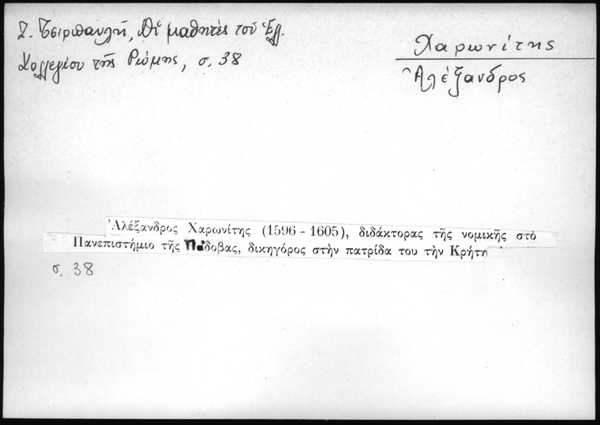 Ζ. Τσιρπανλῆ, Οἱ μαθητὲς τοῦ Ἑλ.
Κολλεγίου τῆς Ρώμης, σ. 38
Χαρωνίτης
Ἀλέξανδρος
Ἀλέξανδρος Χαρωνίτης (1596 - 1605), διδάκτορας τῆς νομικῆς στὸ
Πανεπιστήμιο τῆς Πάδοβας, δικηγόρος στὴν πατρίδα του τὴν Κρήτη
σ. 38